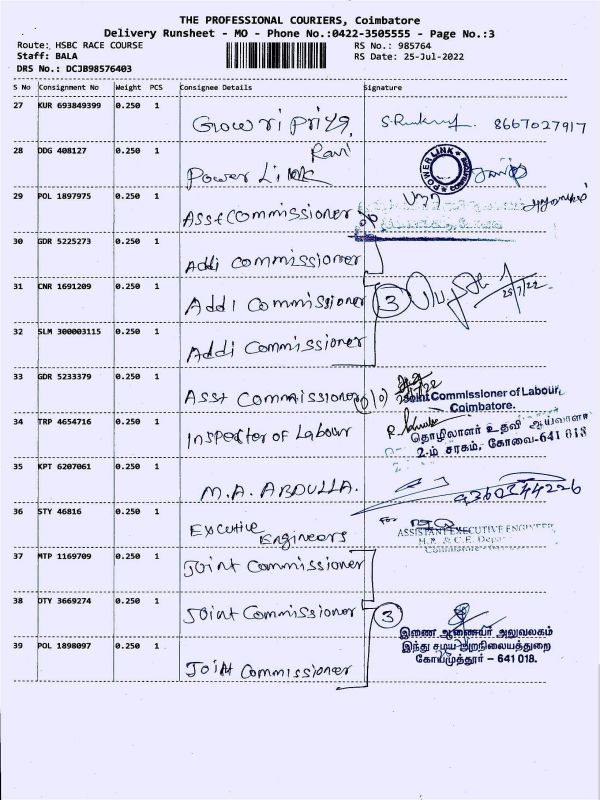 THE PROFESSIONAL COURIERS, Coimbatore
Delivery Runsheet - MO - Phone No.:0422-3505555 - Page No.:3
Route: HSBC RACE COURSE RS No.: 985764
Staff: BALA RS Date: 25-Jul-2022
DRS No.: DCJB98576403
S No Consignment No Weight PCS Consignee Details Signature
27 KUR 693849399 0.250 1 Gowri Priya, 8667027917
28 DDG 408127 0.250 1 Ravi
Power Link POWER LINK
29 POL 1897975 0.250 1 Asst Commissioner
30 GDR 5225273 0.250 1 Addi Commissioner
31 CNR 1691209 0.250 1 Addi Commissioner 3 25/7/22
32 SLM 300003115 0.250 1 Addi Commissioner
33 GDR 5233379 0.250 1 Asst Commissioner
Joint Commissioner of Labour,
Coimbatore.
34 TRP 4654716 0.250 1 Inspector of Labour
தொழிலாளர் உதவி ஆய்வாளர்
2-ம் சரகம், கோவை-641 018
35 KPT 6207061 0.250 1 M.A. ABDULLA. 9360244226
36 STY 46816 0.250 1 Executive
Engineers
For
ASSISTANT EXECUTIVE ENGINEER
37 MTP 1169709 0.250 1 Joint Commissioner
38 OTY 3669274 0.250 1 Joint Commissioner 3
இணை ஆணையர் அலுவலகம்
39 POL 1898097 0.250 1 Joint Commissioner
இந்து சமய அறநிலையத்துறை
கோயமுத்தூர் - 641 018.